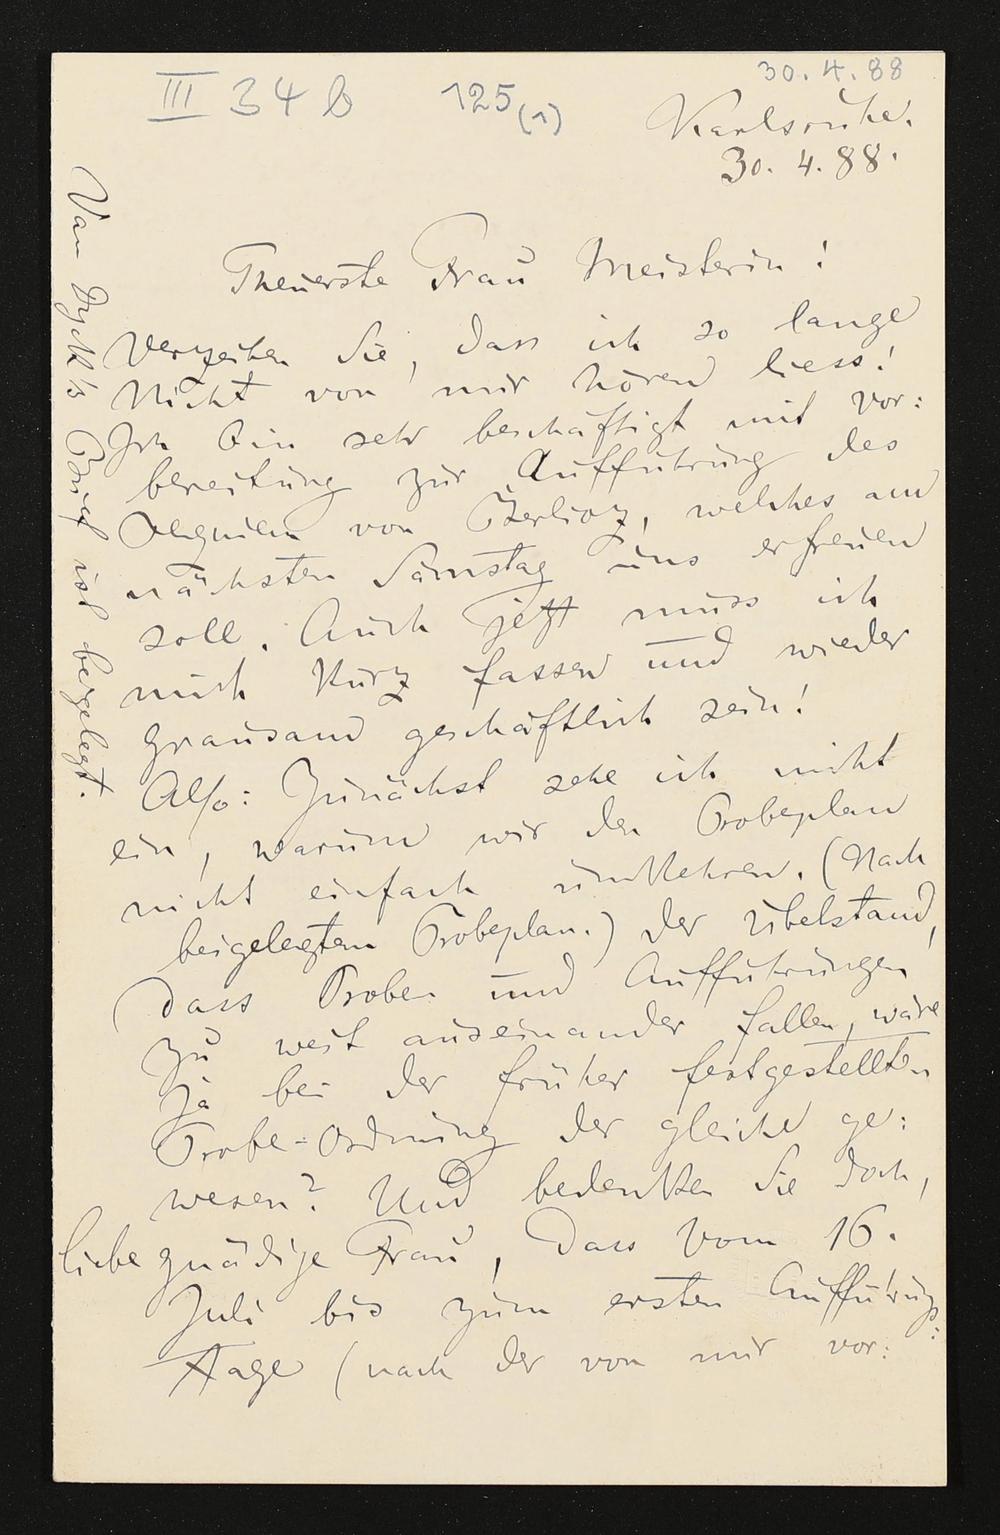 30.4.88
III 34 b 125 (1)
Karlsruhe.
30. 4. 88.
Theuerste Frau Meisterin!
Verzeihen Sie, dass ich so lange
Nicht von mir hören liess!
Ich bin sehr beschäftigt mit Vor:
bereitung zur Aufführung des
Requiem von Berlioz, welches am
nächsten Samstag uns erfreuen
soll. Auch jetzt muss ich
mich kurz fassen und wieder
grausam geschäftlich sein!
Also: Zunächst sehe ich nicht
ein, warum wir den Probeplan
nicht einfach umkehren. (Nach
beigelegtem Probeplan.) Der Übelstand,
dass Proben und Aufführungen
zu weit auseinander fallen, wäre
ja bei der früher festgestellten
Probe-Ordnung der gleiche ge:
wesen? Und bedenken Sie doch,
liebe gnädige Frau, dass vom 16.
Juli bis zum ersten Aufführungs:
Tage (nach der von mir vor:
Van Dyck's Brief ist beigelegt.